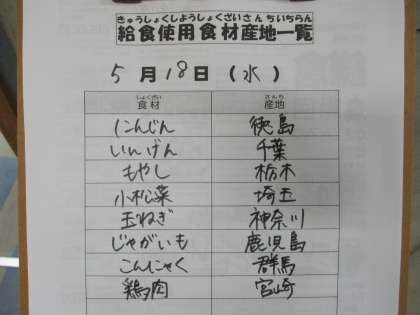 きゅうしょくしようしょくざいさんちいちらん
給食使用食材産地一覧
5月18日(水)
しょくざい さんち
食材 産地
にんじん 徳島
いんげん 千葉
もやし 栃木
小松菜 埼玉
玉ねぎ 神奈川
じゃがいも 鹿児島
こんにゃく 群馬
鶏肉 宮崎